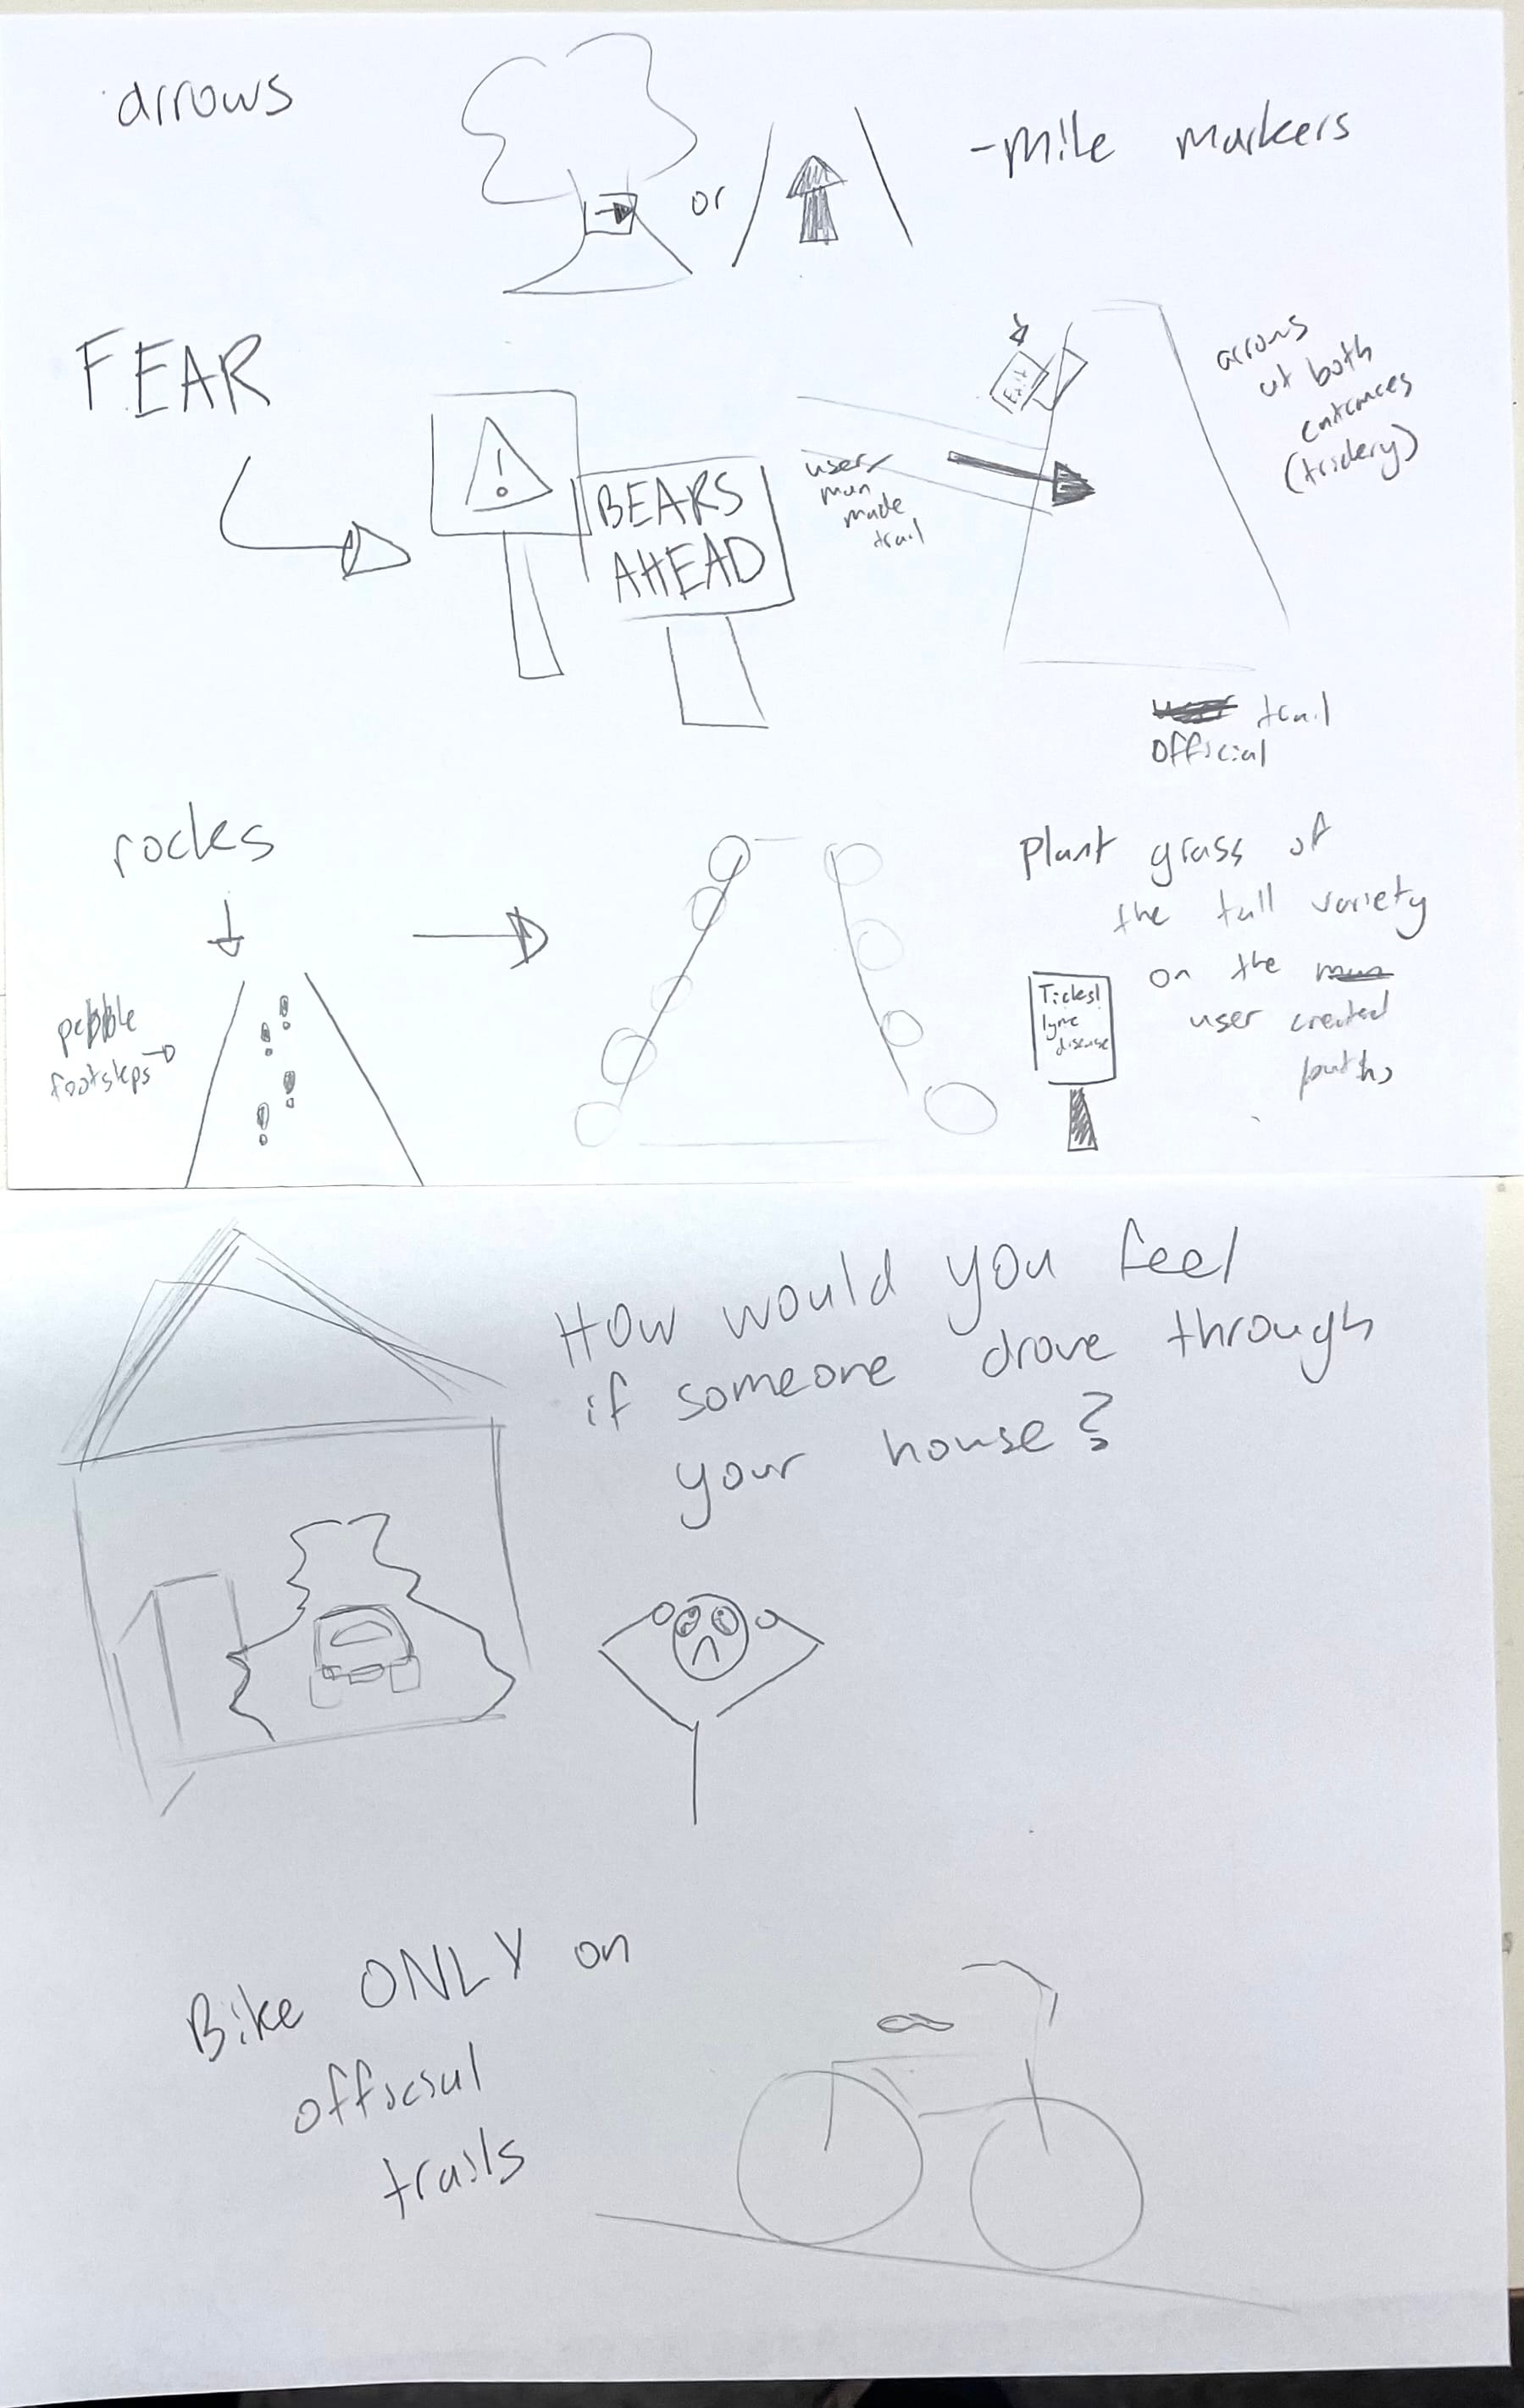 arrows
or
-mile markers
FEAR
!
BEARS
AHEAD
Exit
user/
man
made
trail
arrows
at both
entrances
(trickery)
trail
official
rocks
pebble
footsteps
Plant grass of
the tall variety
on the
user created
paths
Ticks!
lyme
disease
How would you feel
if someone drove through
your house?
Bike ONLY on
official
trails